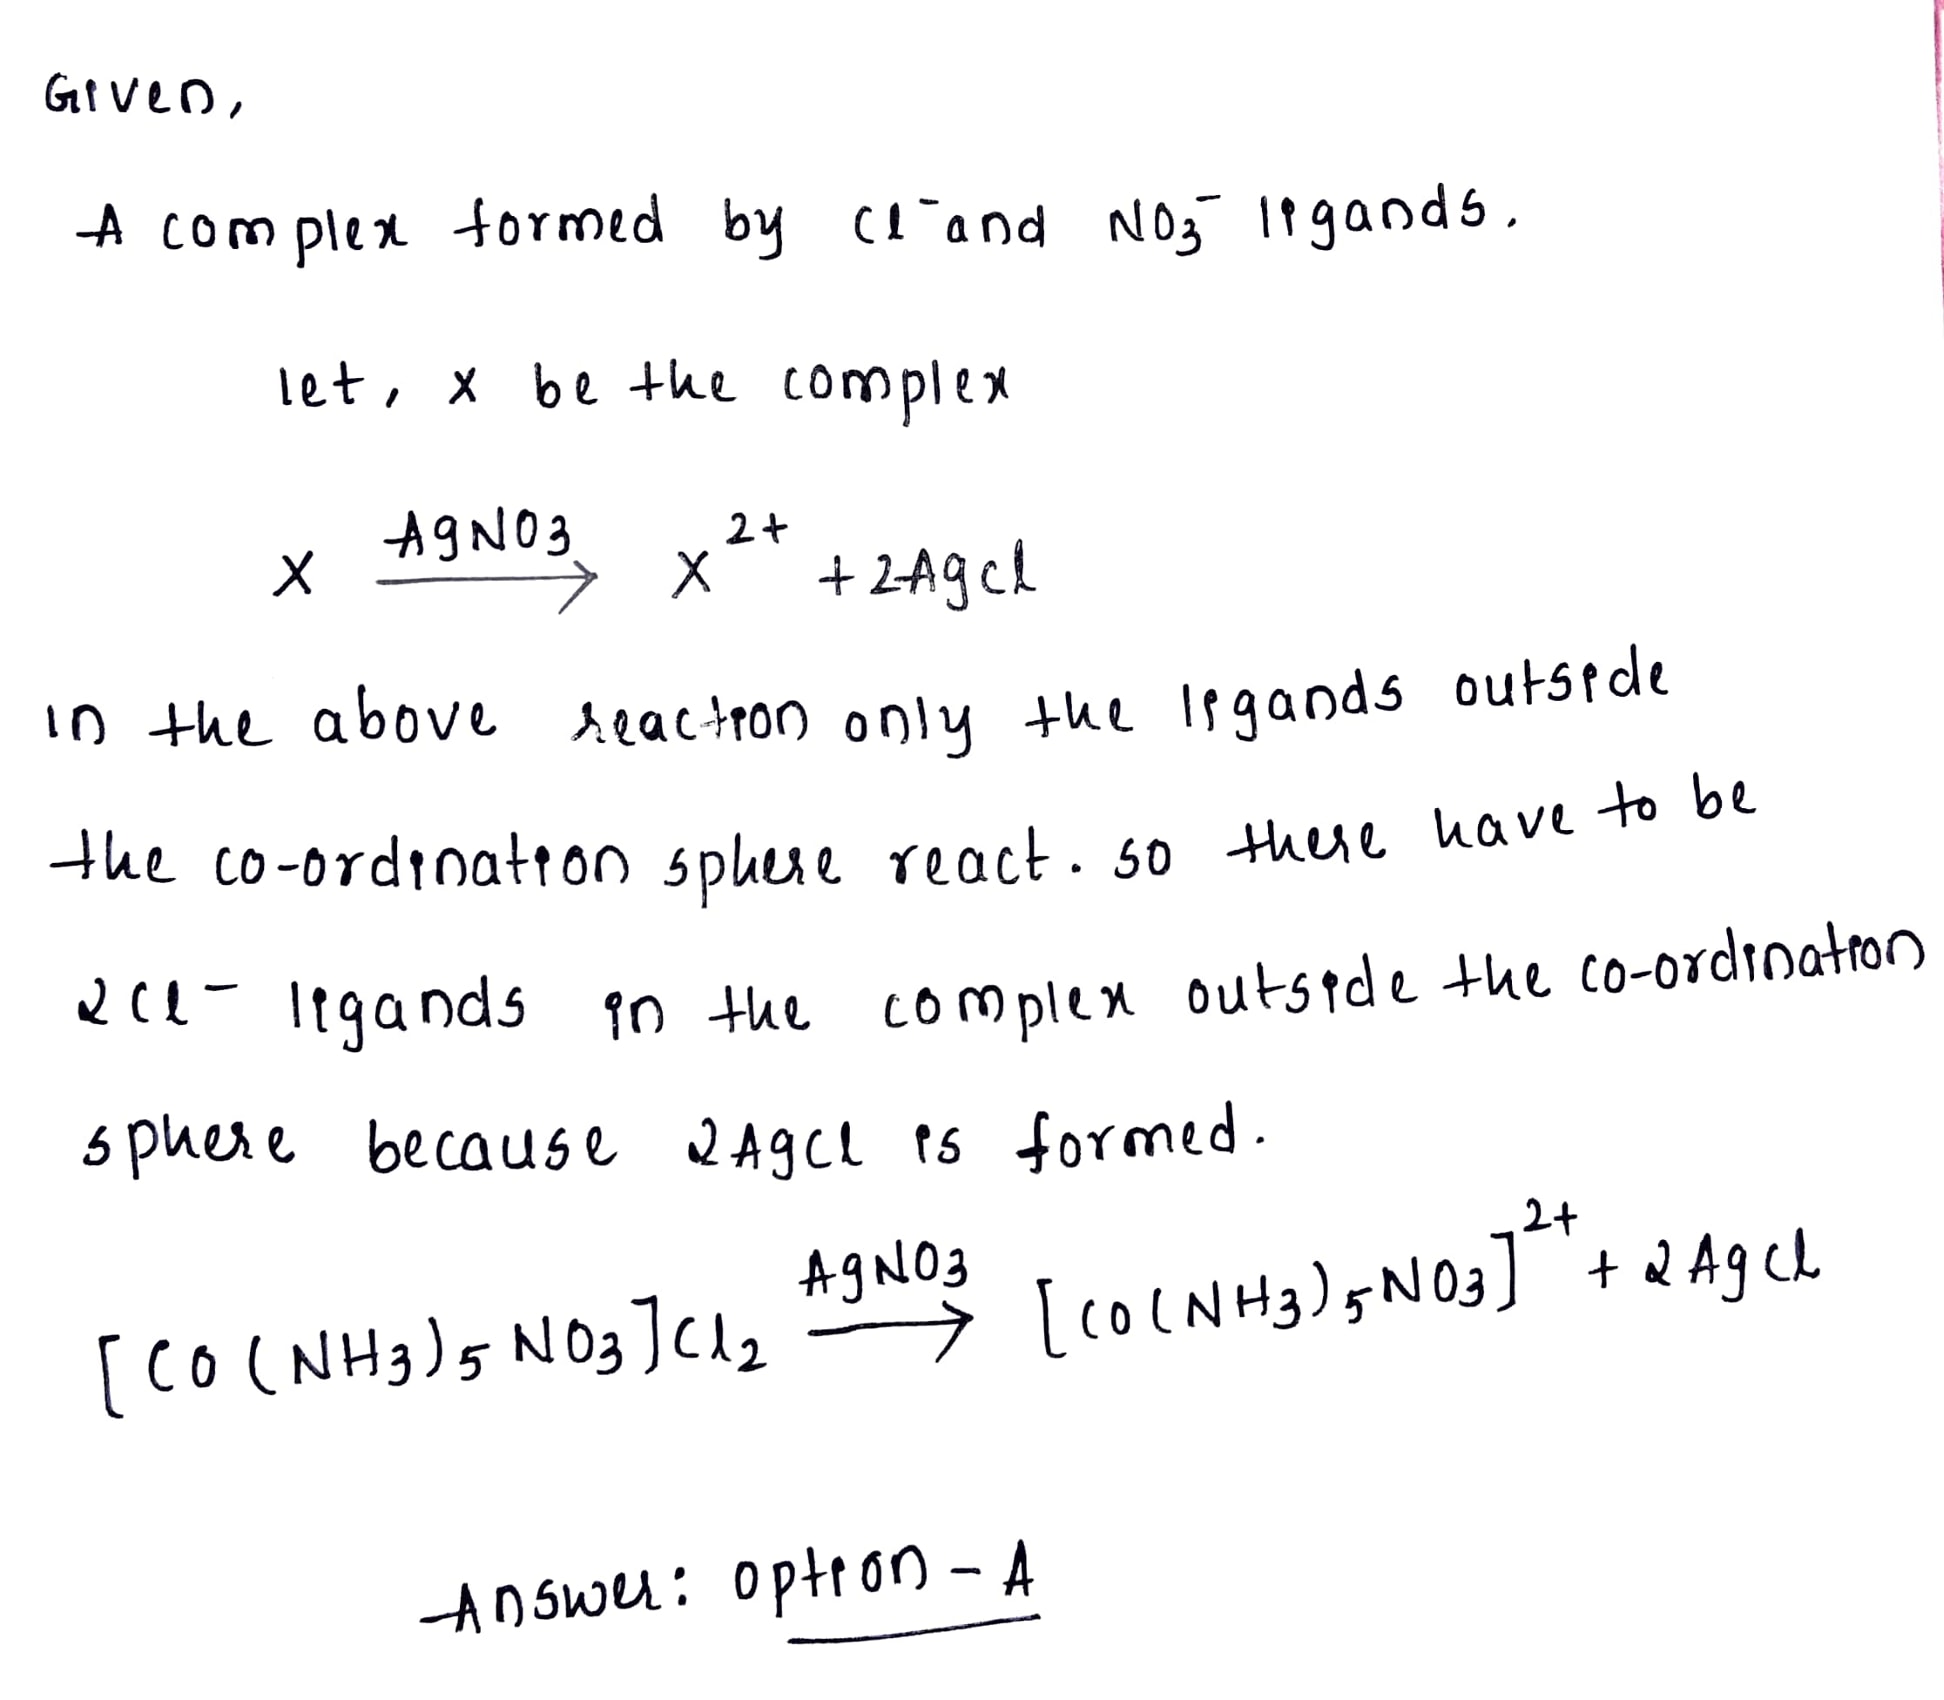 Given,
A complex formed by Cl⁻ and NO₃⁻ ligands.
let, x be the complex
x —AgNO₃→ x²⁺ + 2AgCl
in the above reaction only the ligands outside
the co-ordination sphere react. so there have to be
2Cl⁻ ligands in the complex outside the co-ordination
sphere because 2AgCl is formed.
[CO(NH₃)₅NO₃]Cl₂ —AgNO₃→ [CO(NH₃)₅NO₃]²⁺ + 2AgCl
Answer: option - A